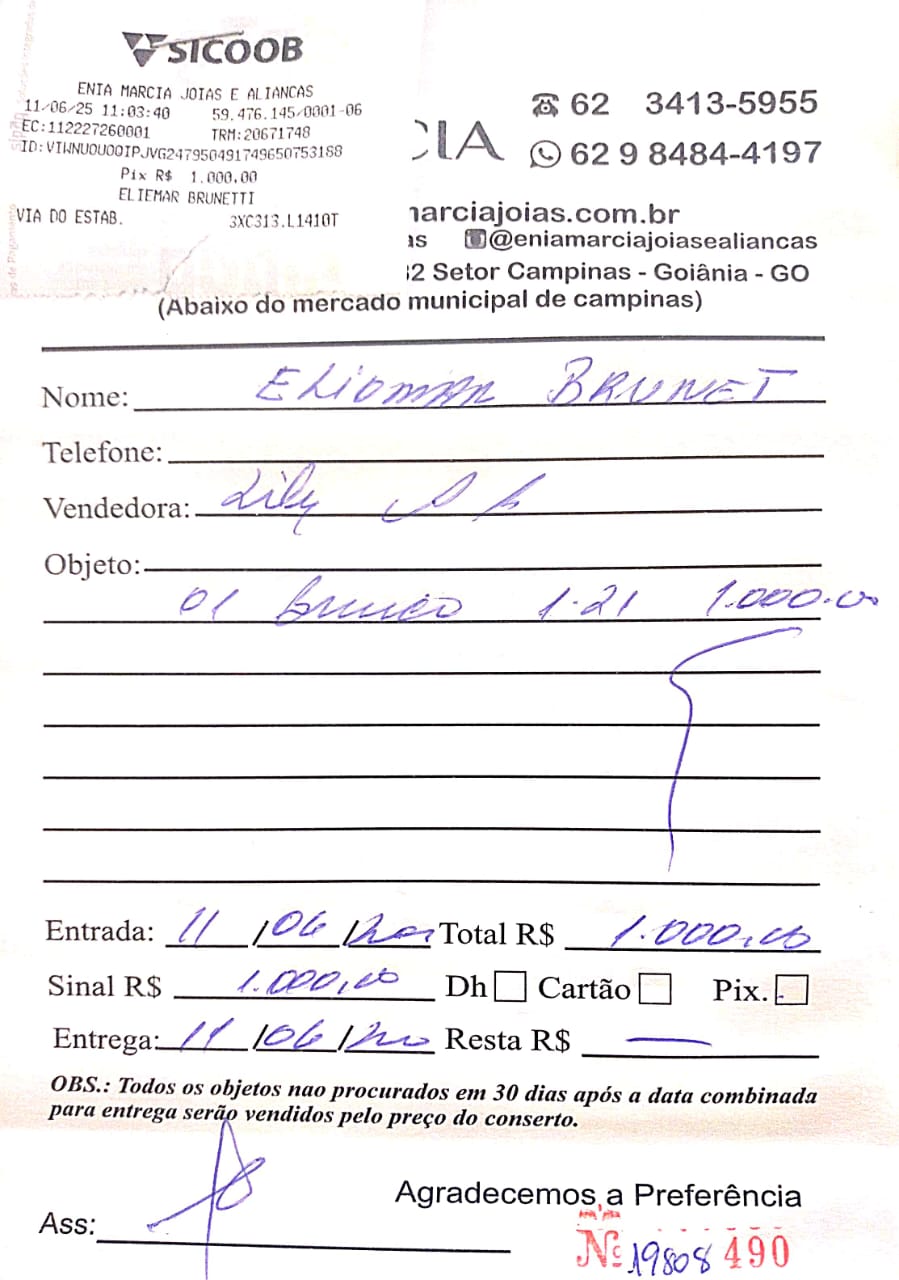 SICOOB
ENIA MARCIA JOIAS E ALIANCAS
11/06/25 11:03:40 59.476.145/0001-06
EC:112227260001 TRM:20671748
ID:VIWNUOUOOIPJVG247950491749650753188
Pix R$ 1.000,00
ELIEMAR BRUNETTI
VIA DO ESTAB. 3XC313.L1410T
62 3413-5955
CIA
62 9 8484-4197
narciajoias.com.br
as @eniamarciajoiasealiancas
32 Setor Campinas - Goiânia - GO
(Abaixo do mercado municipal de campinas)
Nome: ELIOMAR BRUNET
Telefone:
Vendedora: Lily
Objeto:
01 brinco 1.21 1.000.00
Entrada: 11/06/ Total R$ 1.000,00
Sinal R$ 1.000,00 Dh Cartão Pix.
Entrega: 11/06/ Resta R$ —
OBS.: Todos os objetos nao procurados em 30 dias após a data combinada
para entrega serão vendidos pelo preço do conserto.
Agradecemos a Preferência
Ass:
Nº 19808 490